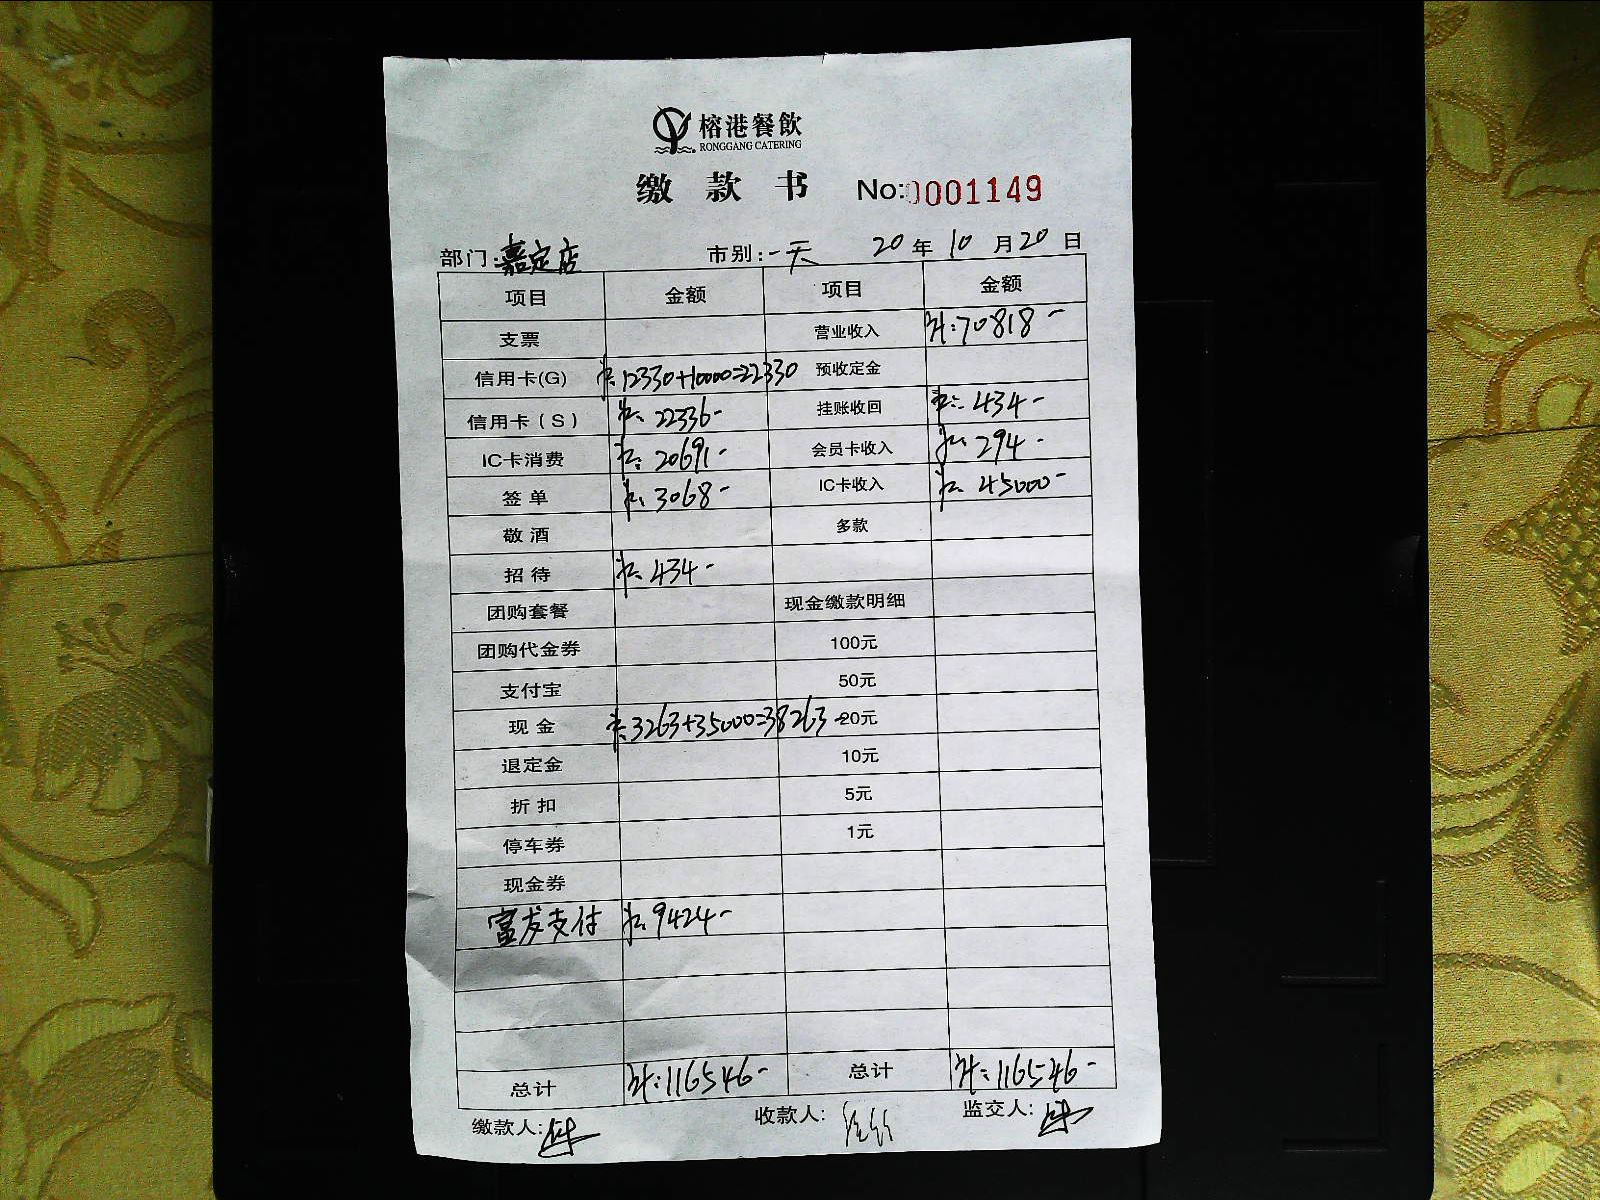 榕港餐飲
RONGGANG CATERING
缴款书 No:0001149
部门:嘉定店 市别:一天 20年10月20日
项目 金额 项目 金额
支票 营业收入 计:70818-
信用卡(G) 12330+10000=22330 预收定金
信用卡(S) 22336- 挂账收回 434-
IC卡消费 20691- 会员卡收入 294-
签单 3068- IC卡收入 45000-
敬酒 多款
招待 434-
团购套餐 现金缴款明细
团购代金券 100元
支付宝 50元
现金 3263+35000=38263- 20元
退定金 10元
折扣 5元
停车券 1元
现金券
富友支付 9424-
总计 计:116546- 总计 计:116546-
缴款人: 收款人: 监交人: